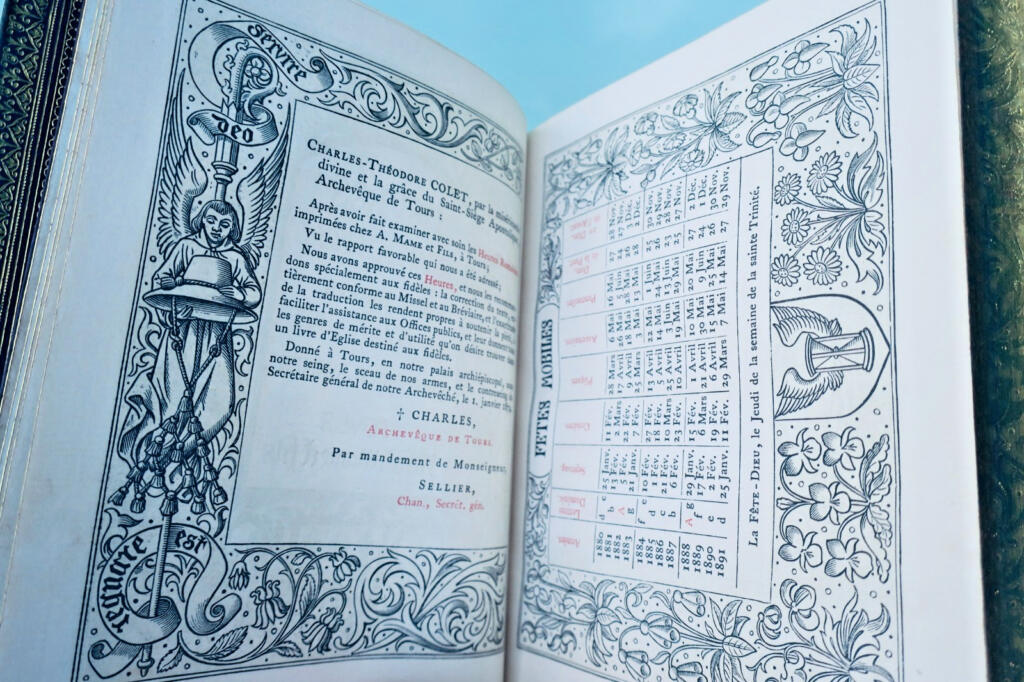 servire
deo
regnare est
CHARLES-THÉODORE COLET, par la
divine et la grâce du Saint-Siège Apostolique
Archevêque de Tours :
Après avoir fait examiner avec soin les Heures Romaines
imprimées chez A. MAME et FILS, à Tours,
Vu le rapport favorable qui nous a été adressé;
Nous avons approuvé ces Heures, et nous les recomman-
dons spécialement aux fidèles : la correction du texte, en-
tièrement conforme au Missel et au Bréviaire, et
de la traduction les rendent propres à soutenir la piété, à
faciliter l'assistance aux Offices publics, et leur donnent tous
les genres de mérite et d'utilité qu'on désire trouver dans
un livre d'Eglise destiné aux fidèles.
Donné à Tours, en notre palais archiépiscopal, sous
notre seing, le sceau de nos armes, et le contreseing du
Secrétaire général de notre Archevêché, le 1. janvier
† CHARLES,
ARCHEVÊQUE DE TOURS.
Par mandement de Monseigneur,
SELLIER,
Chan., Secrét. gén.
FÊTES MOBILES
Années Lettres Domin. Septuag. Cendres Pâques Ascension Pentecôte Dim. de la Pent. Dim. de l'Avent
1880 d c 25 Janv. 11 Fév. 28 Mars 6 Mai 16 Mai 27 28 Nov.
1881 b 13 Fév. 2 Mars 17 Avril 26 Mai 5 Juin 24 27 Nov.
1882 A 5 Fév. 22 Fév. 9 Avril 18 Mai 28 Mai 26 3 Déc.
1883 g 21 Janv. 7 Fév. 25 Mars 3 Mai 13 Mai 28 2 Déc.
1884 f e 10 Fév. 27 Fév. 13 Avril 22 Mai 1 Juin 25 30 Nov.
1885 d 1 Fév. 18 Fév. 5 Avril 14 Mai 24 Mai 26 29 Nov.
1886 c 21 Fév. 10 Mars 25 Avril 3 Juin 13 Juin 23 28 Nov.
1887 b 6 Fév. 23 Fév. 10 Avril 19 Mai 29 Mai 25 27 Nov.
1888 A g 29 Janv. 15 Fév. 1 Avril 10 Mai 20 Mai 27 2 Déc.
1889 f 17 Fév. 6 Mars 21 Avril 30 Mai 9 Juin 24 1 Déc.
1890 e 2 Fév. 19 Fév. 6 Avril 15 Mai 25 Mai 26 30 Nov.
1891 d 25 Janv. 11 Fév. 29 Mars 7 Mai 17 Mai 27 29 Nov.
La FÊTE-DIEU, le Jeudi de la semaine de la sainte Trinité.